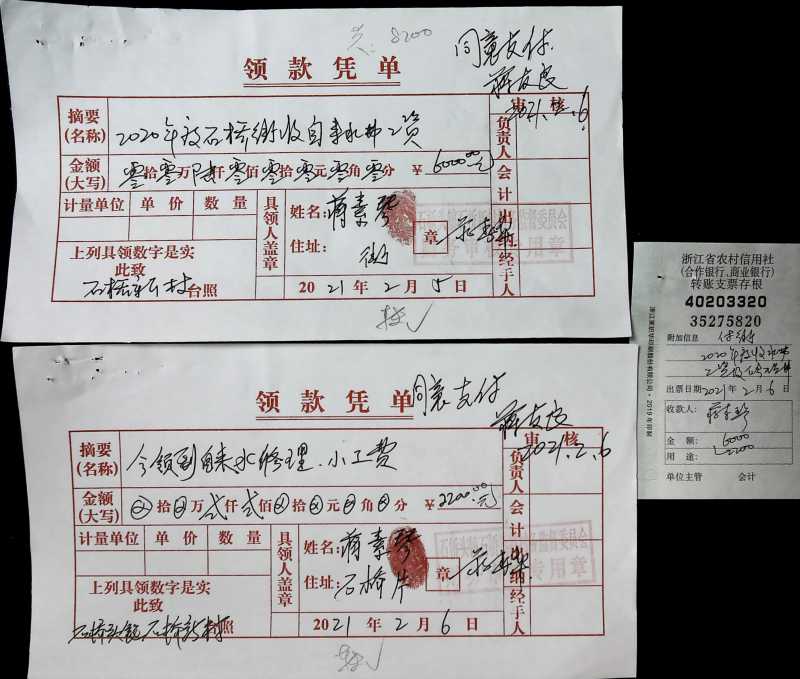 共:8200
同意支付
蒋友良
2021.2.6
领款凭单
摘要
(名称)
2020年度石桥街收自来水费工资
审核
负责人
会计
出纳
经手人
金额
(大写)
零拾零万陆仟零佰零拾零元零角零分 ¥6000.00元
计量单位 单价 数量
具领人盖章
姓名:蒋素琴
住址:街
章
上列具领数字是实
此致
台照
2021年2月5日
同意支付
蒋友良
2021.2.6
领款凭单
摘要
(名称)
今领到自来水修理.小工费
审核
负责人
会计
出纳
经手人
金额
(大写)
拾万贰仟贰佰拾元角分 ¥2200.00元
计量单位 单价 数量
具领人盖章
姓名:蒋素琴
住址:石桥片
章
上列具领数字是实
此致
台照
2021年2月6日
浙江省农村信用社
(合作银行、商业银行)
转账支票存根
40203320
35275820
附加信息
2020年度收水费
出票日期2021年2月6日
收款人:蒋素琴
金额:6000
2200
用途:
单位主管 会计